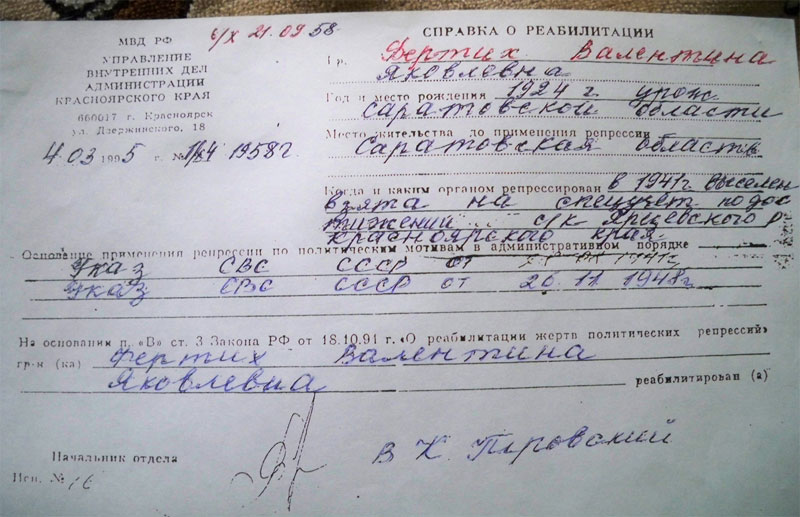 МВД РФ
с/х 21.09 58-
УПРАВЛЕНИЕ
ВНУТРЕННИХ ДЕЛ
АДМИНИСТРАЦИИ
КРАСНОЯРСКОГО КРАЯ
660017 г. Красноярск
ул. Дзержинского, 18
4.03 1995 г. № 1958г
СПРАВКА О РЕАБИЛИТАЦИИ
Гр. Фертих Валентина
Яковлевна
Год и место рождения 1924 г. урож
Саратовской области
Место жительства до применения репрессии
Саратовская область
Когда и каким органом репрессирован в 1941г выселен
взята на спецучет по дос
тижений с/к Ярцевского р
Красноярского края
Основание применения репрессии по политическим мотивам в административном порядке
Указ СВС СССР от 1941г
Указ СВС СССР от 26.11 1948г
На основании п. «В» ст. 3 Закона РФ от 18.10.91 г. «О реабилитации жертв политических репрессий»
гр-н (ка) Фертих Валентина
Яковлевна реабилитирован (а)
Начальник отдела В К. Пировский
Исп. № 16